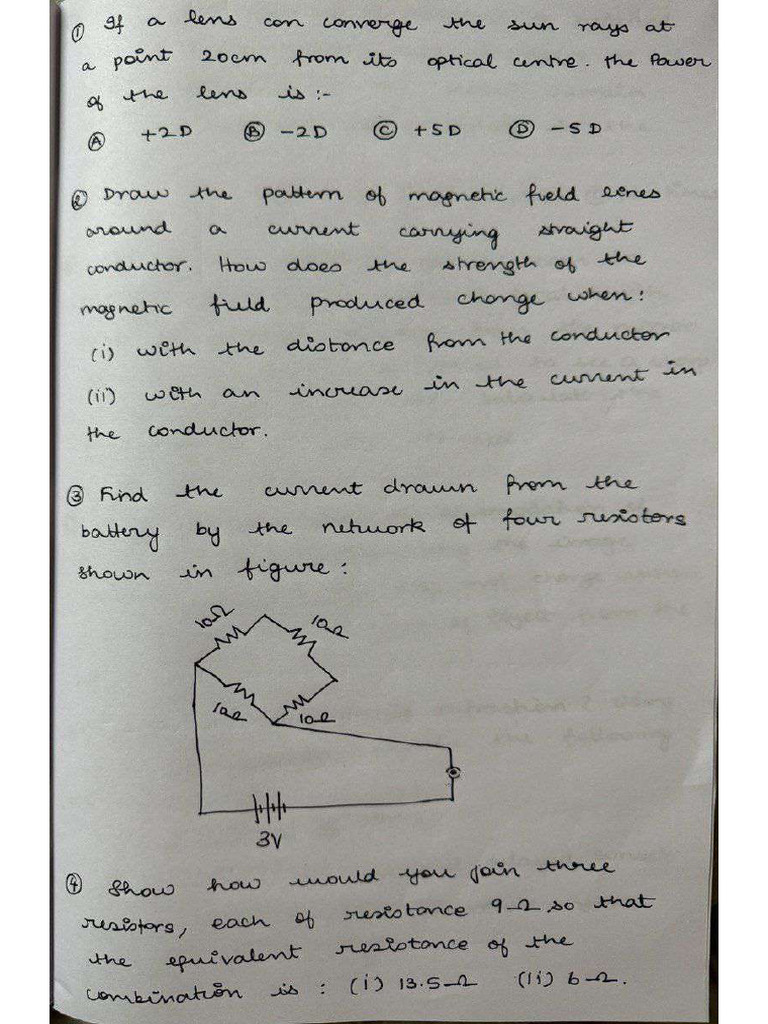 ① If a lens can converge the sun rays at
a point 20cm from its optical centre. the Power
of the lens is :-
Ⓐ +2D Ⓑ -2D Ⓒ +5D Ⓓ -5D
② Draw the pattern of magnetic field lines
around a current carrying straight
conductor. How does the strength of the
magnetic field produced change when:
(i) with the distance from the conductor
(ii) with an increase in the current in
the conductor.
③ Find the current drawn from the
battery by the network of four resistors
shown in figure :
10Ω 10Ω
10Ω 10Ω
3V
④ Show how would you join three
resistors, each of resistance 9Ω so that
the equivalent resistance of the
combination is : (i) 13.5Ω (ii) 6Ω.